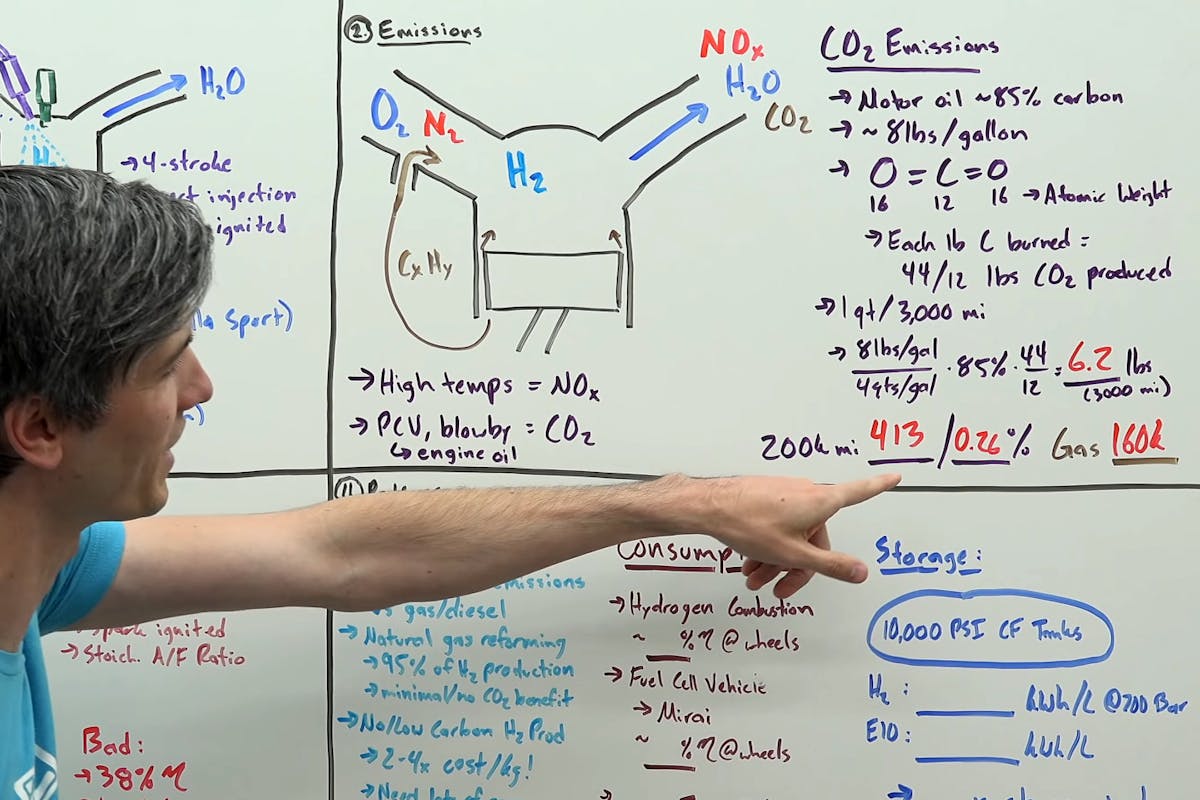 H₂O
H
→ 4-stroke
ct injection
ignited
la Sport)
② Emissions
O₂ N₂
H₂
NOx
H₂O
CO₂
CxHy
→ High temps = NOx
→ PCV, blowby = CO₂
↳ engine oil
CO₂ Emissions
→ Motor oil ~85% carbon
→ ~8lbs/gallon
→ O = C = O
16 12 16 → Atomic Weight
→ Each lb C burned =
44/12 lbs CO₂ produced
→ 1 qt/3,000 mi
→ 8lbs/gal / 4qts/gal · 85% · 44/12 = 6.2 lbs
(3000 mi)
200k mi 413 / 0.26% Gas 160k
spark ignited
→ Stoich. A/F Ratio
Bad:
→ 38% η
missions
vs gas/diesel
→ Natural gas reforming
→ 95% of H₂ production
→ minimal/no CO₂ benefit
→ No/Low Carbon H₂ Prod
→ 2-4x cost/kg!
→ Need lots of
Consumpt
→ Hydrogen Combustion
~ __ % η @ wheels
→ Fuel Cell Vehicle
→ Mirai
~ __ % η @ wheels
Storage:
10,000 PSI CF Tanks
H₂: ____ kWh/L @ 700 Bar
E10: ____ kWh/L